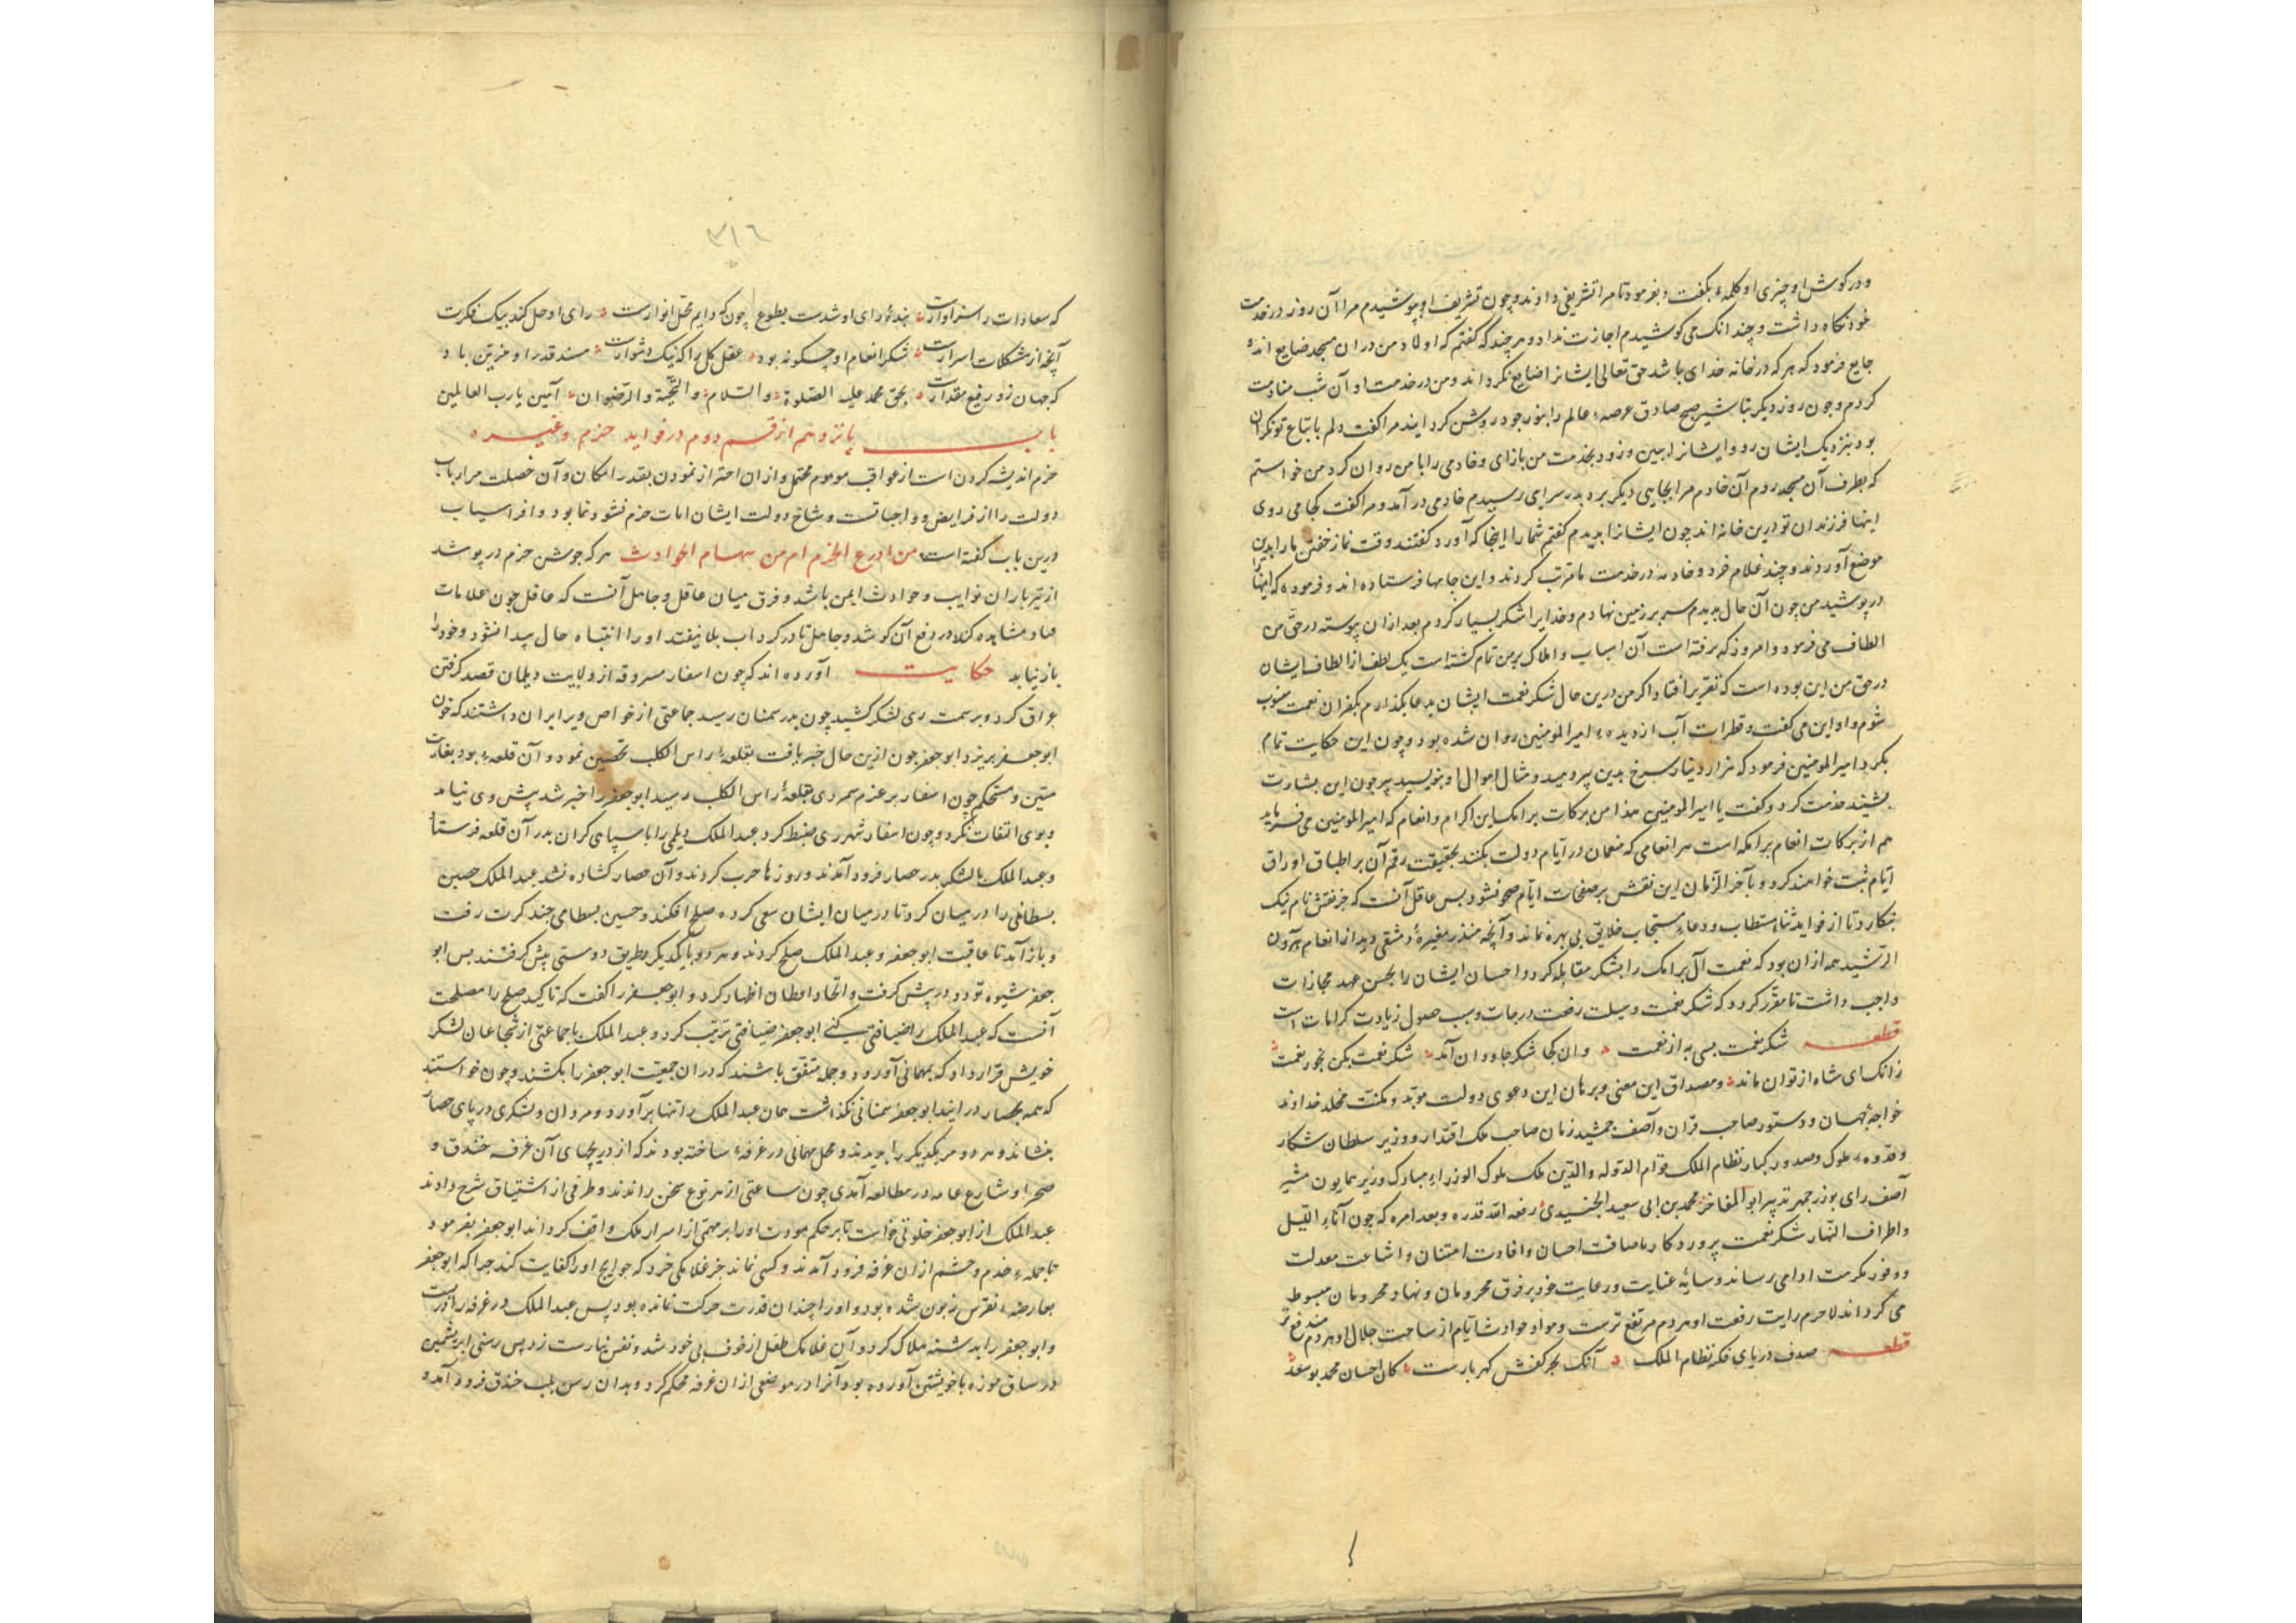 و در گوش او چیزی او کلمهٔ بگفت و بفرمود تا مرا تشریفی دادند و چون تشریف او بپوشیدم مرا آن روز در خدمت
خود نگاه داشت و چندانک می کوشیدم اجازت نداد و هر چند که گفتم که اولاد من در آن مسجد ضایع اند
جایع فرمود که هر که در خانه خدای باشد حق تعالی ایشانرا ضایع نگرداند و من در خدمت او آن شب منادمت
کردم و چون روز دیگر تباشیر صبح صادق عرصهٔ عالم را بنور خود روشن گردانید مرا گفت دلم باتباع تو نگران
بود بنزدیک ایشان رو و ایشانرا ببین و زود بخدمت من بازای و خادمی را با من روان کرد من خواستم
که بطرف آن مسجد روم آن خادم مرا بجایی دیگر برد بدر سرای رسیدم خادمی در آمد و مرا گفت کجا می روی
اینها فرزندان تو درین خانه اند چون ایشانرا بدیدم گفتم شما را اینجا که آورد گفتند وقت نماز خفتن ما را بدین
موضع آوردند و چند غلام خرد و خادمه در خدمت ما مرتب کردند و این جامها فرستاده اند و فرموده که اینها
در پوشید من چون آن حال بدیدم سر بر زمین نهادم و خدایرا شکر بسیار کردم بعد ازان پیوسته در حق من
الطاف می فرمود و امروز که برفته است آن اسباب و املاک بر من تمام گشته است یک لطف از الطاف ایشان
در حق من این بوده است که تقریر افتاد اگر من درین حال شکر نعمت ایشان بدعا نگذارم بکفران نعمت منسوب
شوم و او این می گفت و قطرات آب از دیدهٔ امیر المومنین روان شده بود و چون این حکایت تمام
بکرد امیر المومنین فرمود که هزار دینار سرخ بدین پیر دهید و مثال اموال او بنویسید پیر چون این بشارت
بشنید خدمت کرد و گفت یا امیر المومنین هذا من برکات برامک این اکرام و انعام که امیر المومنین می فرماید
هم از برکات انعام برامکه است هر انعامی که منعمان در ایام دولت بکنند بحقیقت رقم آن بر اطباق اوراق
ایام ثبت خواهند کرد و بآخر الزمان این نقش بر صفحات ایام محو نشود پس عاقل آنست که جز نقش نام نیک
ننگارد تا از فواید ثناء مستطاب و دعاء مستجاب خلایق بی بهره نماند و آنچه منذر مغیرهٔ دمشقی دید از انعام هرون
الرشید همه ازان بود که نعمت آل برامک را بشکر مقابله کرد و احسان ایشان را بحسن عهد مجازات
واجب داشت تا مقرر گردد که شکر نعمت وسیلت رفعت درجات و سبب حصول زیادت کرامات است
قطعه شکر نعمت بسی به از نعمت وان کجا شکر جاودان آمد شکر نعمت بکن نخور نعمت
زانک ای شاه از توان ماند و مصداق این معنی و برهان این دعوی دولت موبد و مکنت مخلد خداوند
خواجهٔ جهان و دستور صاحب قران و آصف جمشید زمان صاحب ملک اقتدار و وزیر سلطان شکار
و قدوهٔ ملوک و صدور کبار نظام الملک قوام الدوله والدین ملک ملوک الوزراء مبارک وزیر همایون مشیر
آصف رای بوذرجمهر تدبیر ابو المفاخر محمد بن ابی سعید الجنیدی رفعه الله قدره و بعد امره که چون آناء اللیل
و اطراف النهار شکر نعمت پروردگار باضافت احسان و افادت امتنان و اشاعت معدلت
و وفور مکرمت ادا می رساند و سایهٔ عنایت و رعایت خود بر فرق محرومان و محرومان مبسوط
می گرداند لاجرم رایت رفعت او هر دم مرتفع ترست و مواد حوادث ایام از ساحت جلال او هر دم مندفع تر
قطعه صدف دریای فکر نظام الملک آنک بحر کفش گهربارست کان احسان محمد بوسعد
٣١٦
که سعادات را سزاوارست بندهٔ رای او شدست بطوع چون که دایم محل انوارست رای او حل کند بیک فکرت
آنچه از مشکلات اسرارست شکر انعام او چگونه بود عقل کل را که نیک دشوارست مسند قدر او مزین باد
که جهان زو رفیع مقدارست بحق محمد علیه الصلوة والسلام والتحیة والرضوان آمین یا رب العالمین
باب پانزدهم از قسم دوم در فواید حزم و غیره
حزم اندیشه کردن است از عواقب موهوم محتمل و ازان احتراز نمودن بقدر امکان و آن خصلت مر ارباب
دولت را از فرایض و واجباتست و شاخ دولت ایشان ابات حزم نشو و نما بود و افراسیاب
درین باب گفته است من ادرع الحزم امن من سهام الحوادث هر که جوشن حزم در پوشد
از تیر باران نوایب و حوادث ایمن باشد و فرق میان عاقل و جاهل آنست که عاقل چون علامات
فساد مشاهده کند در دفع آن کوشد و جاهل تا در گرداب بلا نیفتد او را انتباه حال پیدا نشود و خود را
باز نیابد حکایت آورده اند که چون اسفار مسروقه از ولایت دیلمان قصد گرفتن
عراق کرد و بر سمت ری لشکر کشید چون بدر سمنان رسید جماعتی از خواص ویرا بران داشتند که خون
ابو جعفر بریزد ابو جعفر چون ازین حال خبر یافت بقلعهٔ راس الکلب تحصین نمود و آن قلعهٔ بود بغایت
متین و مستحکم چون اسفار بر عزم سمر دی بقلعهٔ راس الکلب رسید ابو جعفر را خبر شد پیش وی نیامد
و بوی التفات نکرد و چون اسفار شهر ری ضبط کرد عبد الملک دیلمی را با سپاهی گران بدر آن قلعه فرستاد
و عبد الملک با لشکر بدر حصار فرود آمدند و روزها حرب کردند و آن حصار گشاده نشد عبد الملک حسین
بسطامی را در میان کرد تا در میان ایشان سعی کرده صلح افکند و حسین بسطامی چند کرت رفت
و باز آمد تا عاقبت ابو جعفر و عبد الملک صلح کردند و هر دو با یکدیگر طریق دوستی پیش گرفتند پس ابو
جعفر شیوه تودد در پیش گرفت و اتحاد اظهار کرد و ابو جعفر را گفت که تاکید صلح را مصلحت
آنست که عبد الملک را ضیافتی کنی ابو جعفر ضیافتی ترتیب کرد و عبد الملک با جماعتی از شجاعان لشکر
خویش قرار داد که بمهمانی آورد و جمله متفق باشند که دران جمعیت ابو جعفر را بکشند و چون خواستند
که همه بحصار در آیند ابو جعفر سمنانی نگذاشت همان عبد الملک را تنها بر آورد و مردان و لشکری در پای حصار
بنشاند و هر دو مر یکدیگر را بدیدند و محل مهمانی در غرفهٔ ساخته بودند که از دریچهای آن غرفه خندق و
صحرا و شارع عامه در مطالعه آمدی چون ساعتی از هر نوع سخن راندند و طرفی از اشتیاق شرح دادند
عبد الملک از ابو جعفر خلوتی خواست تا بر حکم مودت او را بر مهمی از اسرار ملک واقف گرداند ابو جعفر بفرمود
تا جملهٔ خدم و حشم ازان غرفه فرود آمدند و کسی نماند جز غلامکی خرد که حوایج او را کفایت کند چرا که ابو جعفر
بعارضهٔ نقرس زبون شده بود و او را چندان قدرت حرکت نمانده بود پس عبد الملک در غرفه
و ابو جعفر را بدشنه هلاک کرد و آن غلامک طفل از خوف بی خود شد و نفس نیارست زد پس رسنی ابریشمین
در ساق موزه با خویشتن آورده بود و آنرا در موضعی ازان غرفه محکم کرد و بدان رسن بلب خندق فرود آمد و